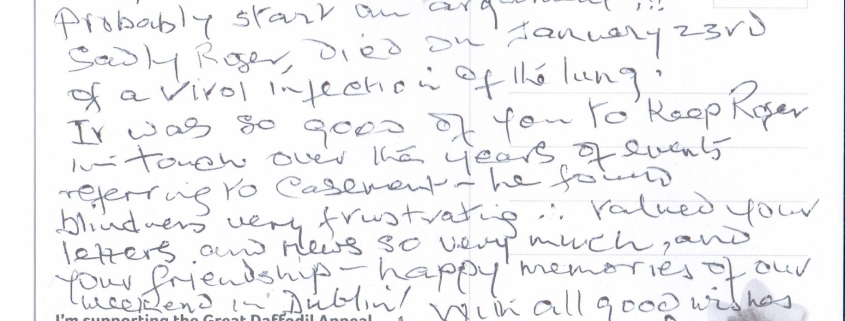 Probably start an argument !!!
Sadly Roger, died on January 23rd
of a viral infection of the lung.
It was so good of you to keep Roger
in touch over the years of events
referring to Casement – he found
blindness very frustrating ∴ valued your
letters and news so very much, and
your friendship – happy memories of our
weekend in Dublin! With all good wishes
I'm supporting the Great Daffodil Appeal